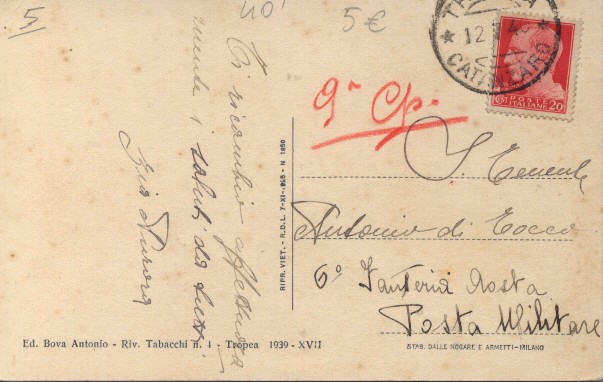 5
40'
5 €
TROPEA
12
CATANZARO
POSTE
ITALIANE 20
9ª Cp.
S. Tenente
Antonio di Tocco
6° Fanteria Aosta
Posta Militare
Ti ricambio affettuosa
mente i saluti da tutti.
Zia Aurora
RIPR. VIET. - R.D.L. 7-XI-925 - N 1950
Ed. Bova Antonio - Riv. Tabacchi n. 1 - Tropea 1939 - XVII
STAB. DALLE NOGARE E ARMETTI - MILANO